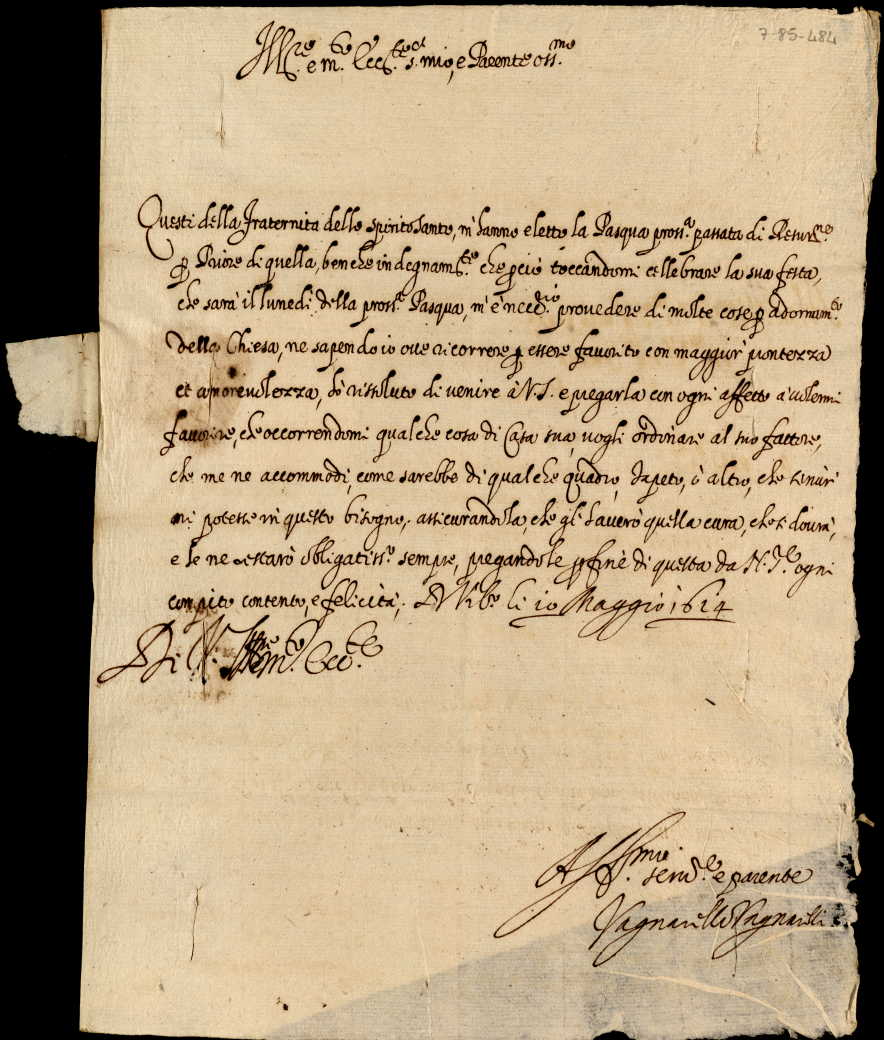 7-85-484
Ill.re e m.to Ecc.te s.r mio, e Parente oss.mo
Questi della Fraternita dello Spirito Santo, m'hanno eletto la Pasqua pross.a passata di Resur.ne
p Priore di quella, benche indegnam.te che p ciò toccandomi cellebrare la sua festa,
che sarà il lunedì della pross.a Pasqua, m'è necc.rio provedere di molte cose p adornam.to
della Chiesa, ne sapendo io oue ricorrere p essere fauorito con maggior prontezza
et amoreuolezza, hò rissoluto di venire à V.S. e pregarla con ogni affetto à uolermi
fauorire, che occorrendomi qualche cosa di Casa sua, vogli ordinare al suo fattore,
che me ne accommodi, come sarebbe di qualche quadro, Tapeto, ò altro, che seruir
mi potesse in questo bisogno, assicurandola, che gli hauerò quella cura, che si dourà,
e le ne restarò obligatiss.o sempre, pregandole p fine di questa da N.S.re ogni
compito contento, e felicità, D'Vrb.o li 10 Maggio 1614
Di V.S. Ill.re e m.to Ecc.te
Aff.mo
seru.re e parente
Vagnarello Vagnarelli